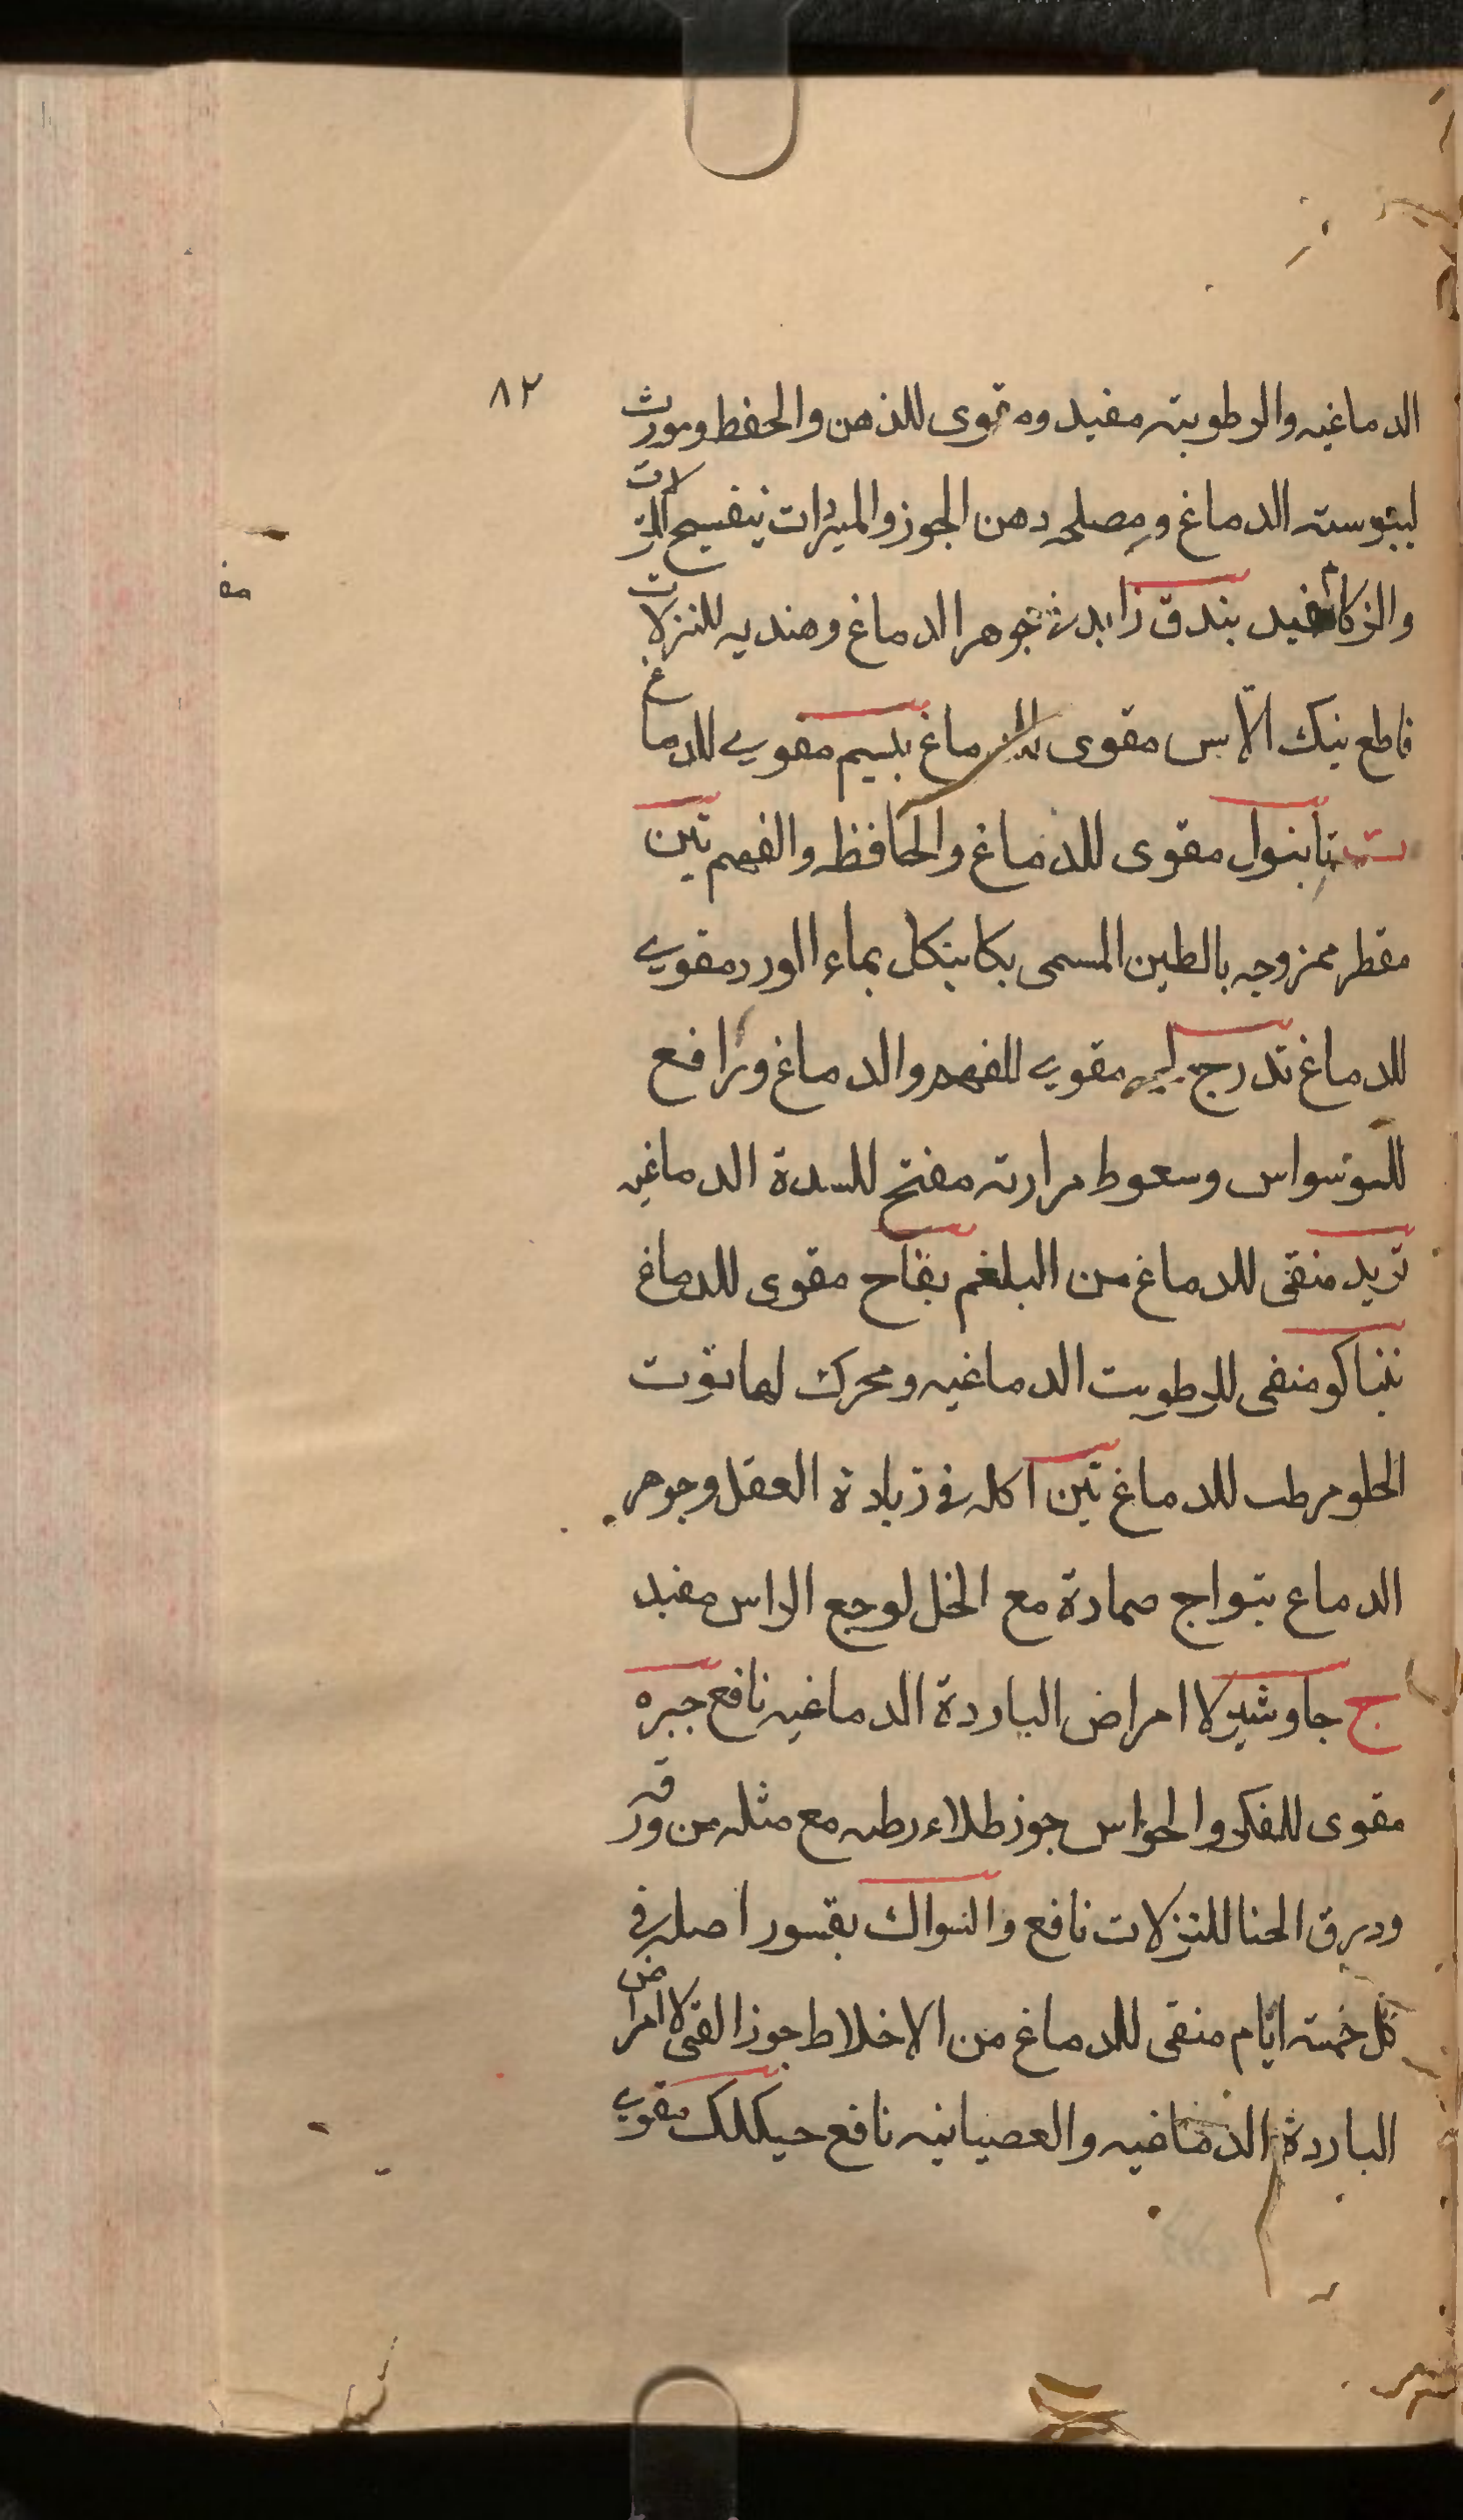 ٨٢
الدماغيه والرطوبته مفيد ومقوى للذهن والحفظ ومورث
ليبوسته الدماغ ومصلحه دهن الجوز والميراث بنفسج للنزلات
والزكام مفيد بندق زايد في جوهر الدماغ وهنديه للنزلات
قاطع بنك الآس مقوى للدماغ بلسيم مقوي للدماغ
ت تانبول مقوى للدماغ والحافظه والفهم تين
مقطر ممزوجه بالطين المسمى بكابنكل بماء الورد مقوي
للدماغ تدرج مقوي للفهم والدماغ ورافع
للسوسواس وسعوط مرارته مفتح للسدة الدماغيه
تربد منقى للدماغ من البلغم تفاح مقوى للدماغ
تنباكو منقى للرطوبت الدماغيه ومحرك لها توت
الحلو مرطب للدماغ تين اكله في زيادة العقل وجوهر
الدماع بتواج ضمادة مع الخل لوجع الراس مفيد
ج جاوشير لا امراض الباردة الدماغيه نافع جبره
مقوى للفكر والحواس جوز طلاء رطبه مع مثله من ورقه
وورق الحنا للنزلات نافع والسواك بقسور اصله في
كل خمته ايّام منقى للدماغ من الاخلاط جوز القى لا امراض
الباردة الدماغيه والعصبانيه نافع حيكلك مقوي